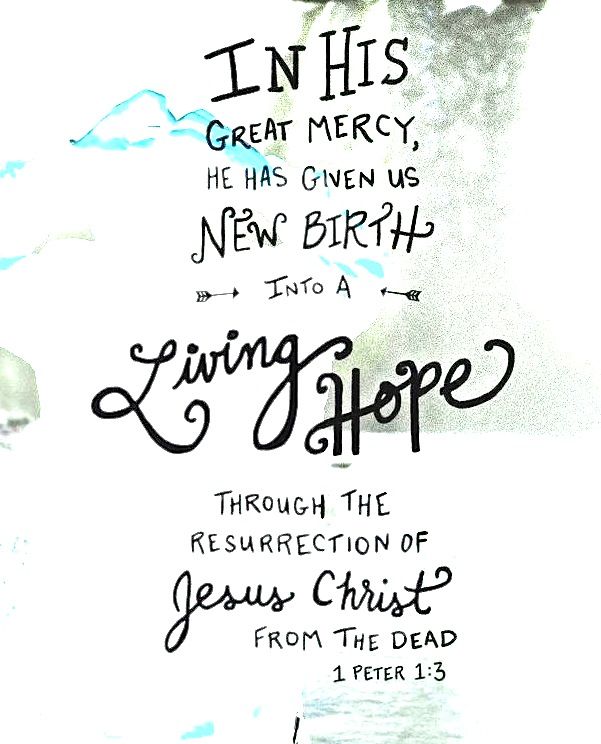 IN HIS
GREAT MERCY,
HE HAS GIVEN US
NEW BIRTH
INTO A
Living Hope
THROUGH THE
RESURRECTION OF
Jesus Christ
FROM THE DEAD
1 PETER 1:3